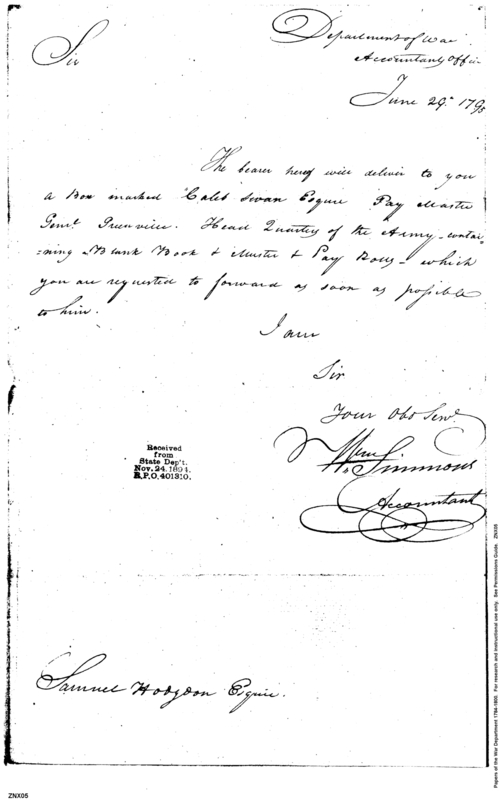 Department of War
Accountants Office
June 29th 1795
Sir
The bearer hereof will deliver to you
a Box marked "Caleb Swan Esquire Pay Master
Genl. Greenville. Head Quarters of the Army – contai-
=ning a Blank Book & Muster & Pay Rolls – which
you are requested to forward as soon as possible
to him.
I am
Sir
Your Obd Servt.
Wm Simmons
Accountant
Received
from
State Dep't.
Nov. 24. 1894.
R.P.O. 401310.
Samuel Hodgdon Esquire.
ZNX05
Papers of the War Department 1784-1800. For research and instructional use only. See Permissions Guide. ZNX05